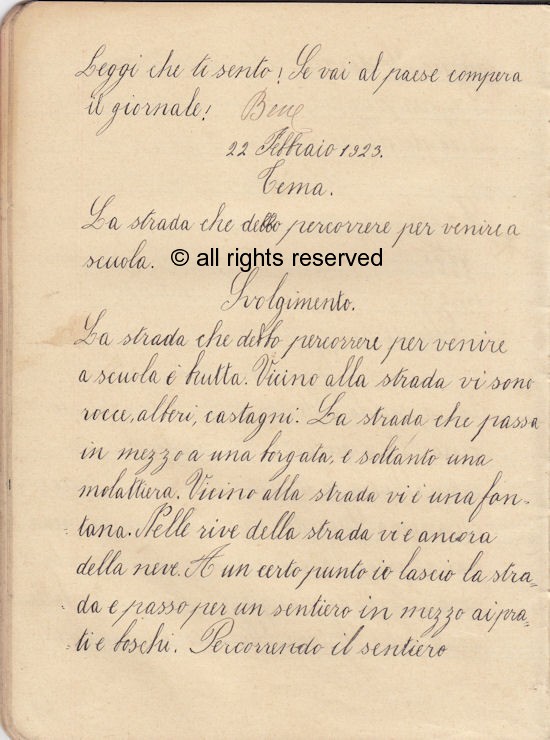 Leggi che ti sento! Se vai al paese compera
il giornale! Bene
22 Febbraio 1923.
Tema.
La strada che debbo percorrere per venire a
scuola.
© all rights reserved
Svolgimento.
La strada che debbo percorrere per venire
a scuola è brutta. Vicino alla strada vi sono
rocce, alberi, castagni. La strada che passa
in mezzo a una borgata, è soltanto una
molattiera. Vicino alla strada vi è una fon-
tana. Nelle rive della strada vi è ancora
della neve. A un certo punto io lascio la stra-
da e passo per un sentiero in mezzo ai pra-
ti e boschi. Percorrendo il sentiero